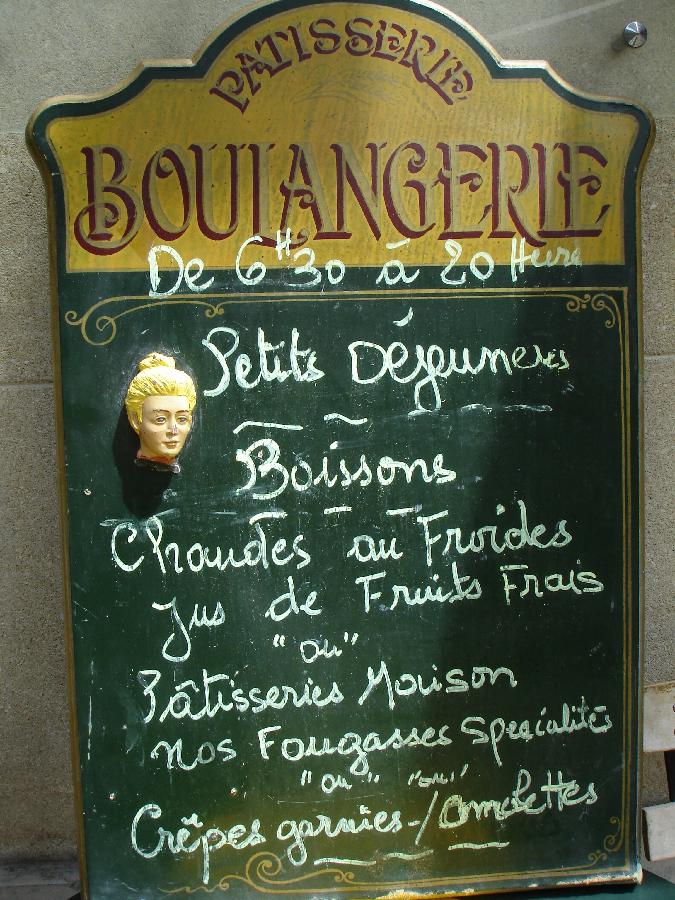 PATISSERIE
BOULANGERIE
De 6H30 à 20 Heure
Petits Déjeuners
Boissons
Chaudes ou Froides
Jus de Fruits Frais
"ou"
Pâtisseries Maison
Nos Fougasses Specialités
"ou" "ou"
Crêpes garnies-/omelettes